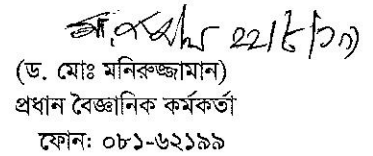 ২২/৮/১৩
(ড. মোঃ মনিরুজ্জামান)
প্রধান বৈজ্ঞানিক কর্মকর্তা
ফোন: ০৮১-৬২১৯৯